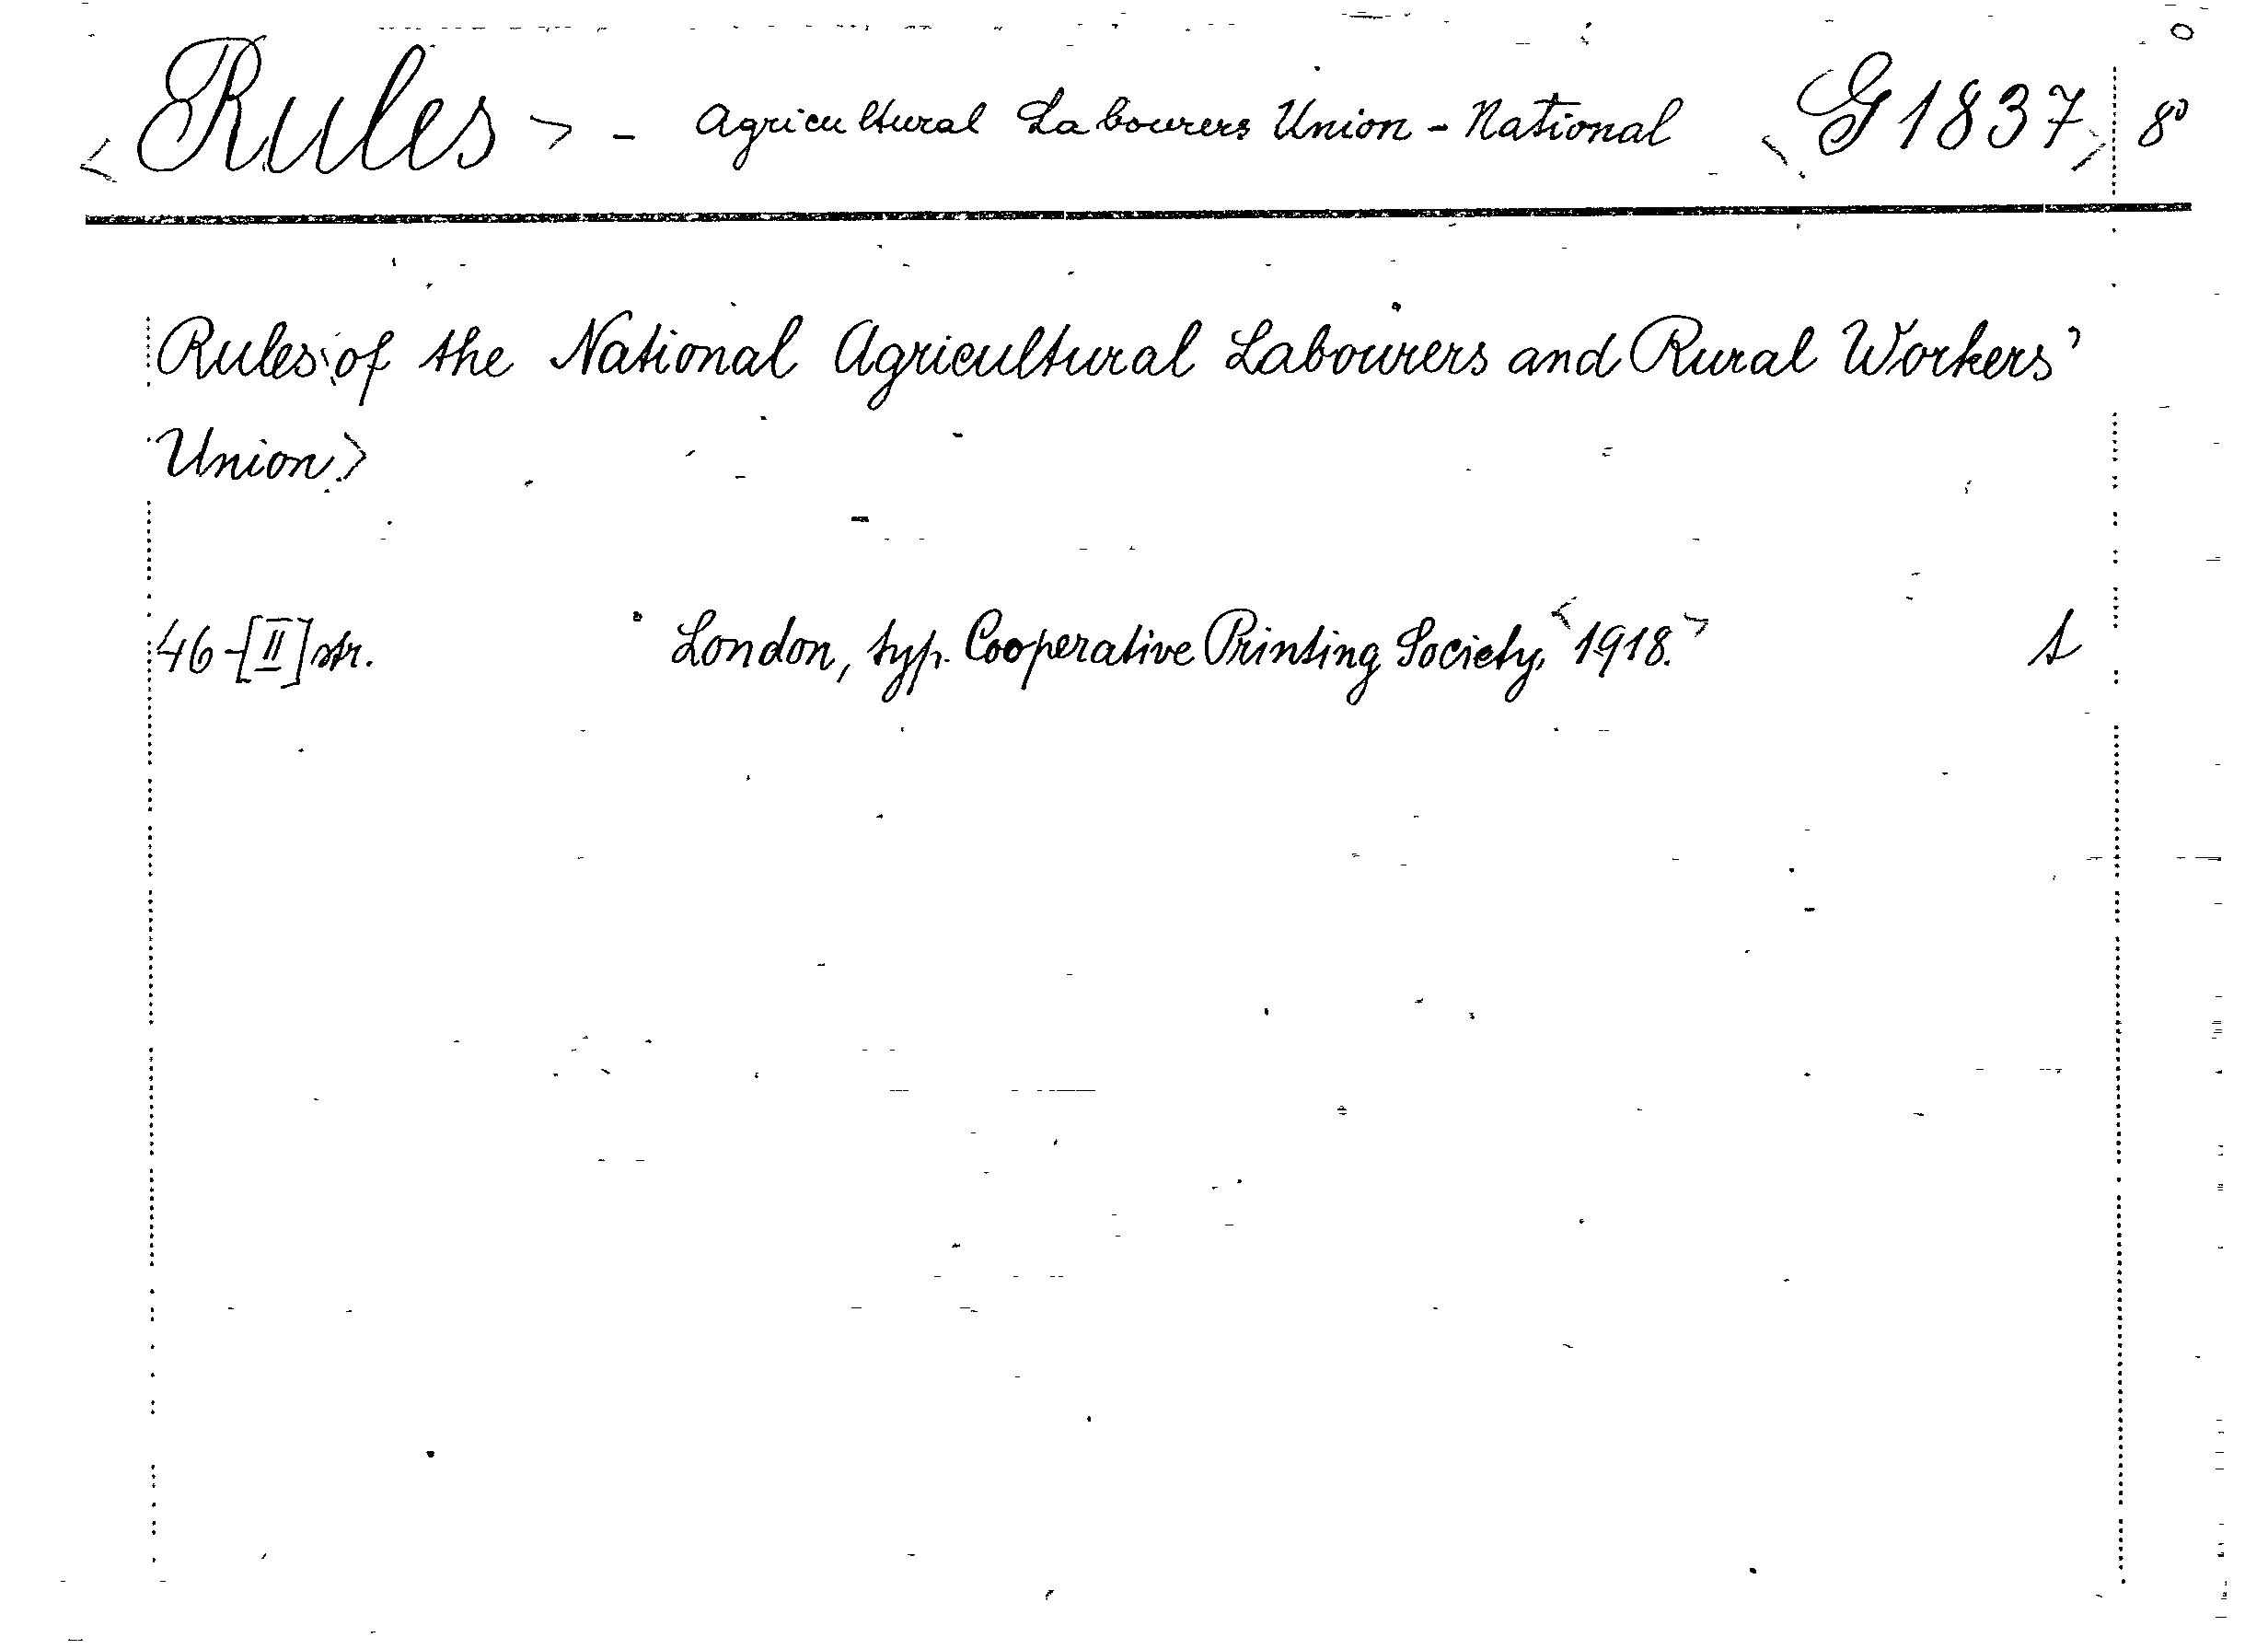 <Rules> - Agricultural Labourers Union - National <G 1837> 8°
Rules of the National Agricultural Labourers and Rural Workers'
Union.>
46-[II] str. London, typ. Cooperative Printing Society, <1918.>